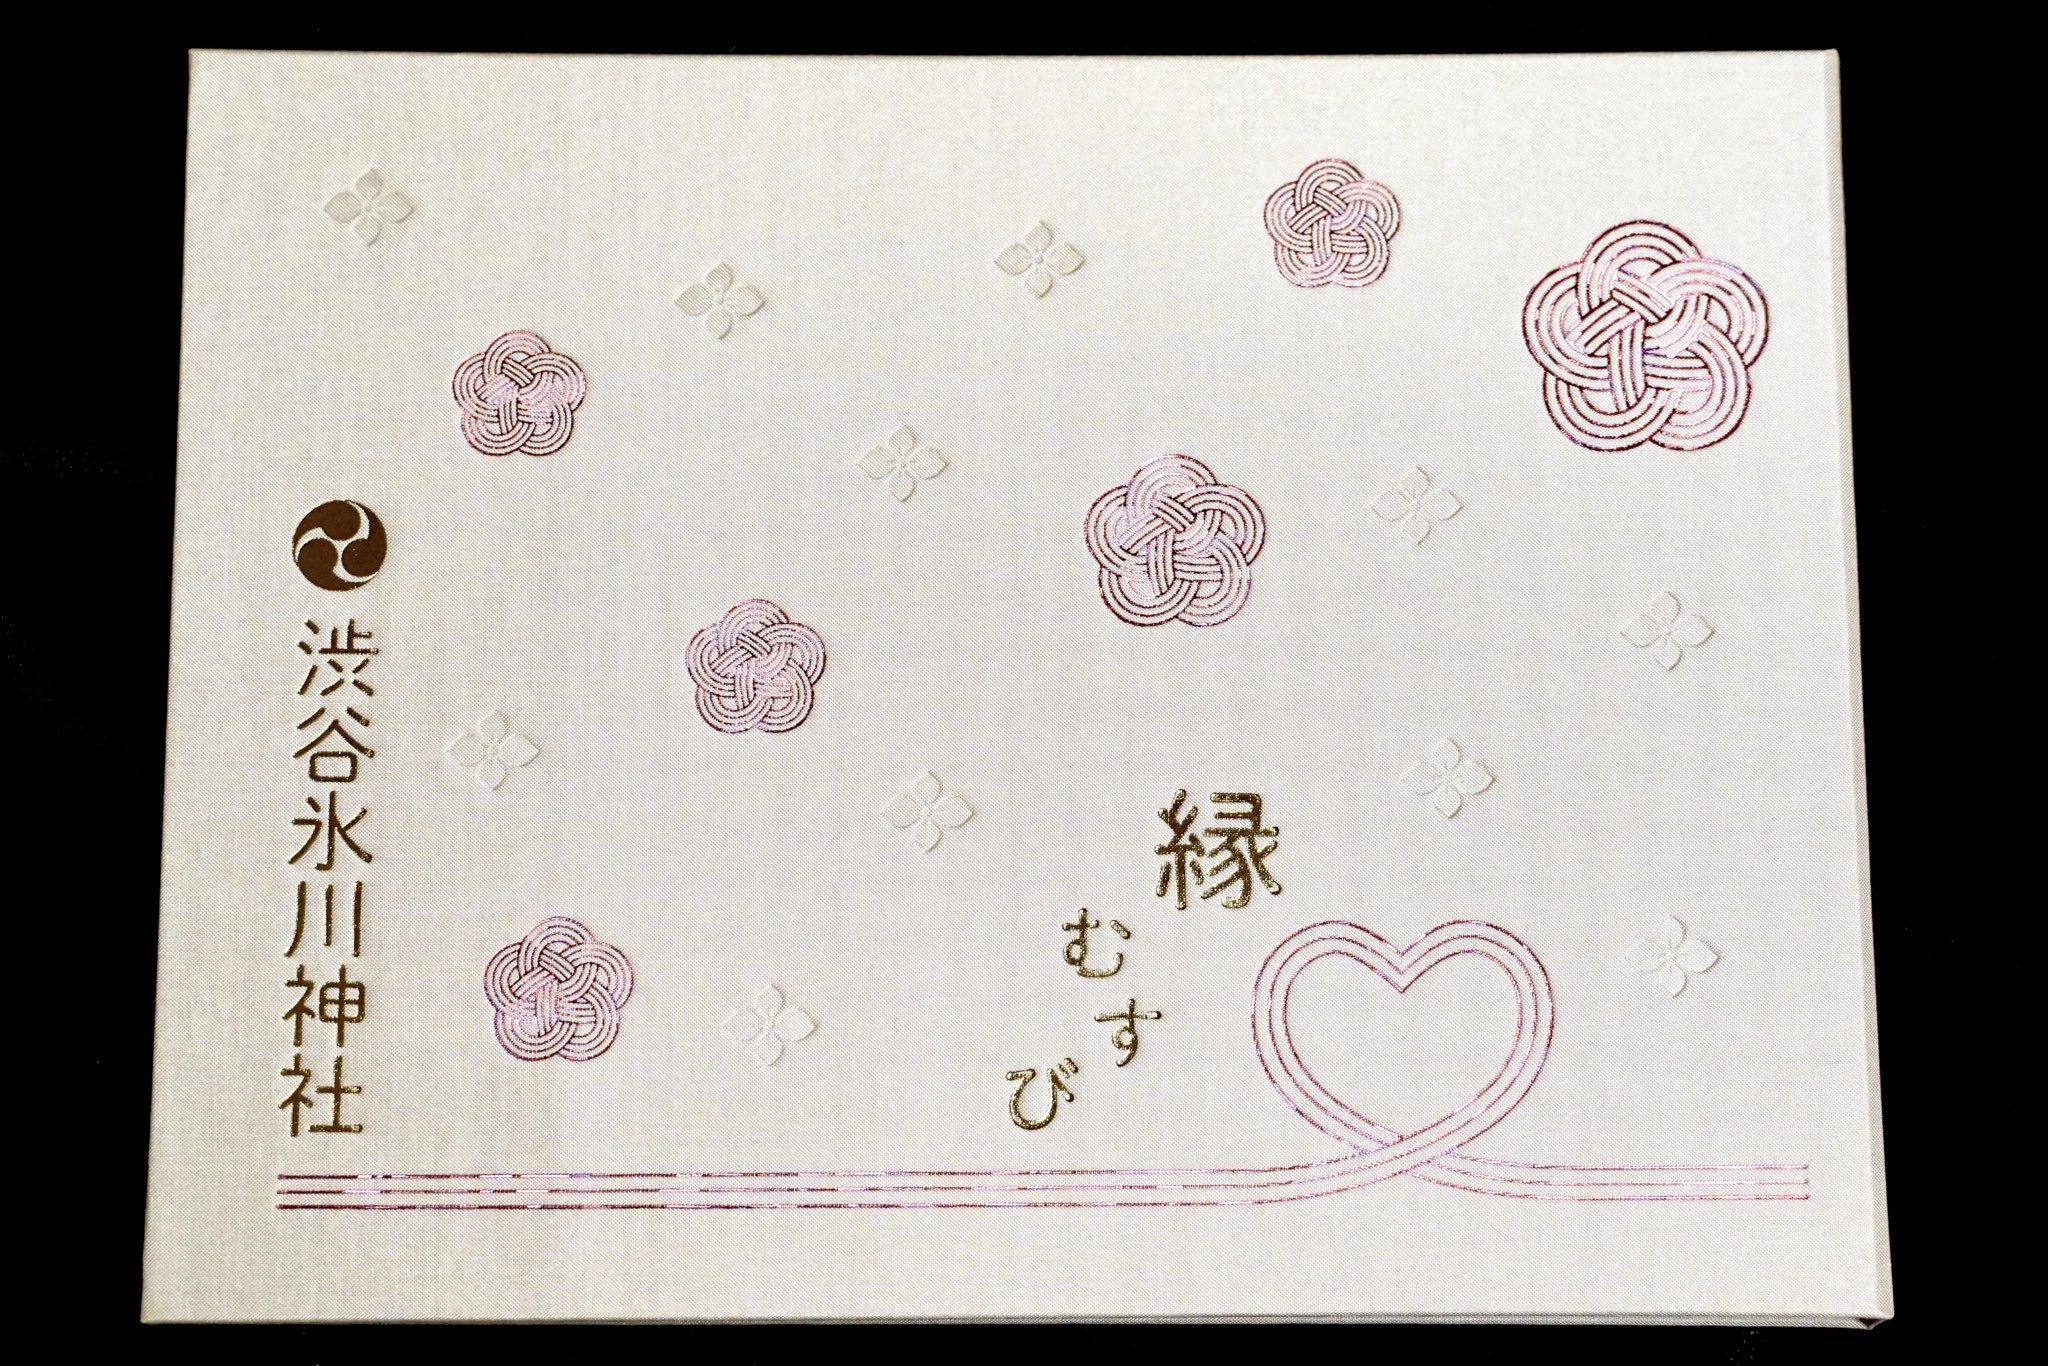 縁むすび
渋谷氷川神社